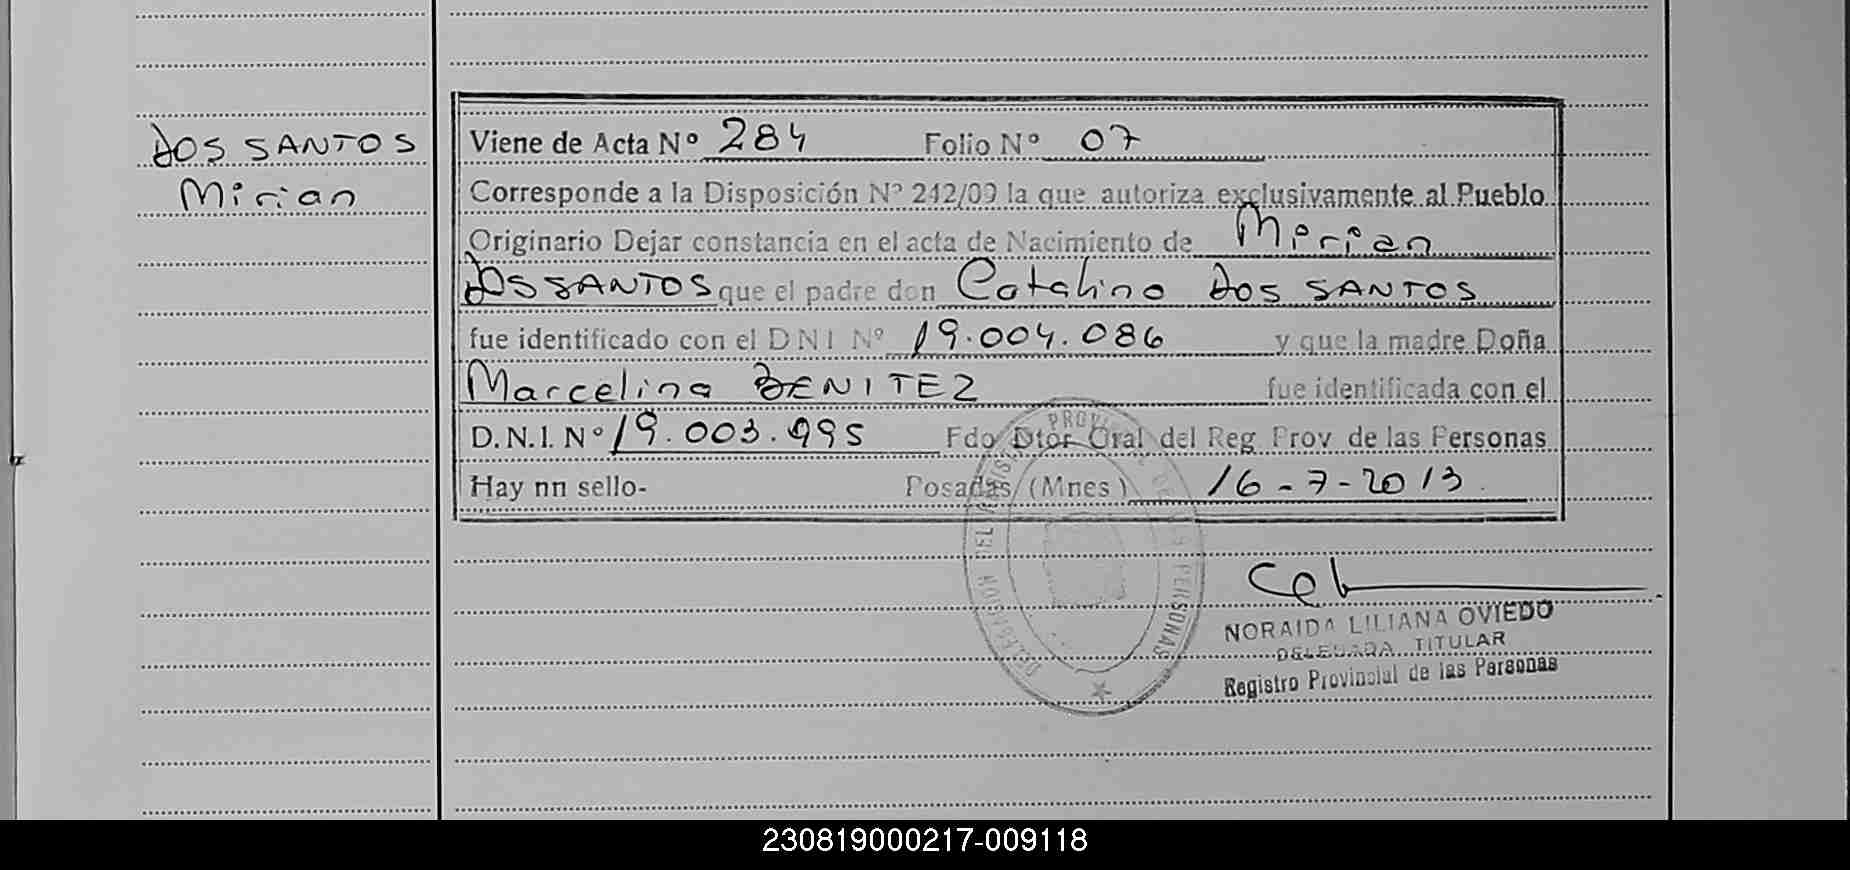 DOS SANTOS
Mirian
Viene de Acta Nº 284 Folio Nº 07
Corresponde a la Disposición Nº 242/09 la que autoriza exclusivamente al Pueblo
Originario Dejar constancia en el acta de Nacimiento de Mirian
DOS SANTOS que el padre don Catalino DOS SANTOS
fue identificado con el D N I Nº 19.004.086 y que la madre Doña
Marcelina BENITEZ fue identificada con el
D.N.I. Nº 19.003.995 Fdo Dtor Gral del Reg Prov de las Personas
Hay nn sello- Posadas (Mnes) 16-7-2013
NORAIDA LILIANA OVIEDO
DELEGADA TITULAR
Registro Provincial de las Personas
230819000217-009118